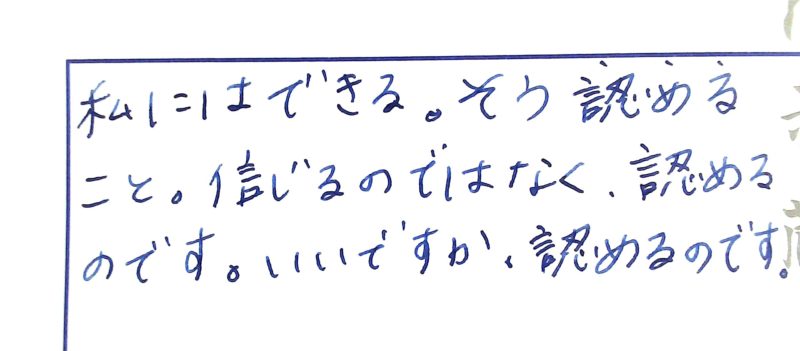 私にはできる。そう認める
こと。信じるのではなく、認める
のです。いいですか、認めるのです。